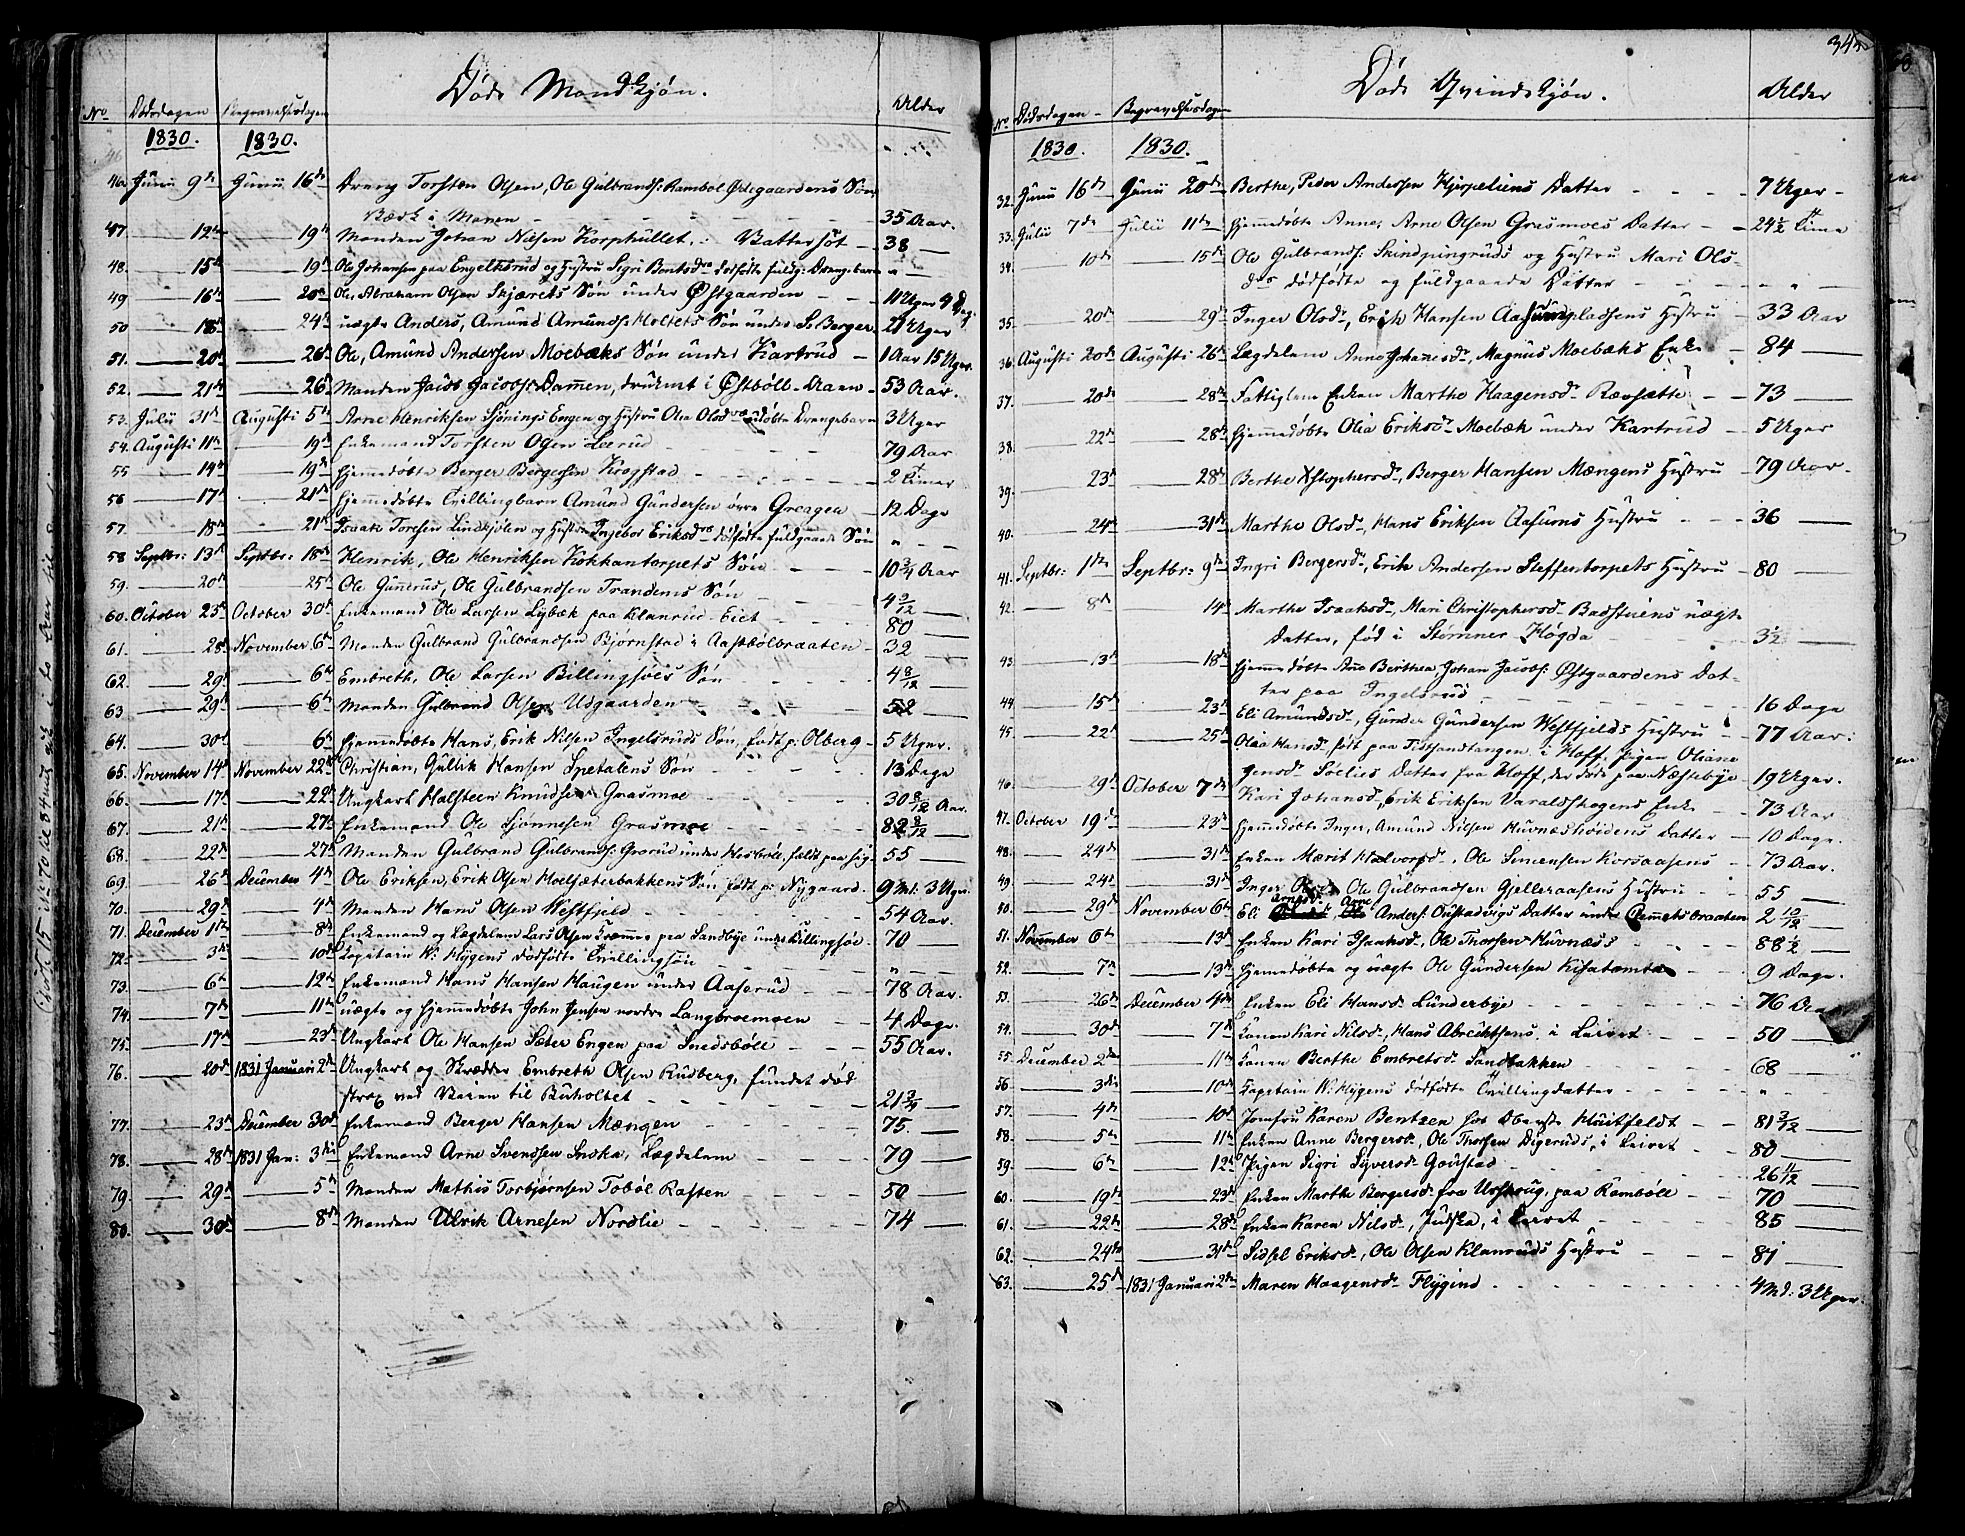 Døde Mandkjøn.
No Dødsdagen Begravelsesdagen Alder
1830. 1830.
46 Junii 9de Junii 16de Dreng Torsten Olsen, Ole Gulbrands: Rambøl Ødegaardens Søn,
Bærk i Manen 35 Aar.
47 12te 19de Manden Johan Nilsen Korphullet, Vattersot 38
48. 15de 19de Ole Johansen paa Engelsrud og Hustru Sigri Bentsdr dødfødte fuldg: Drengebarn "
49 16de 20de Ole, Abraham Olsen Skjærets Søn under Østgaarden 11 Uger 4 Dag
50 18de 24de uægte Anders, Amund Amunds: Holtets Søn under S: Berger 21 Uger
51. 20de 26de Ole, Amund Andersen Moebæks Søn under Kartrud 1 Aar 15 Uger
52. 21de 26de Manden Jacob Jacobs: Dammen, druknet i Østbøll-Aaen 53 Aar.
53. Julii 31te Augusti 5te Arne Henriksen Sjønings Engen og Hustru Olia Olsdr udøbte Drengebarn 3 Uger
54. Augusti 11te 19de Enkemand Torsten Olsen Leerud 79 Aar
55 14de 19de Hjemmedøbte Berger Bergersen Kragstad 2 Timer
56 17de 21de Hjemmedøbte Tvillingbarn Amund Gundersen øvre Greagen 12 Dage
57. 18de 21de Isaak Toresen Lindkjølen og Hustru Ingebor Eriksdr dødfødte fuldgaaede Søn "
58 Septbr: 13de Septbr: 18de Henrik, Ole Henriksen Kokkantorpets Søn 10 3/4 Aar
59. 20de 25de Ole Gunerus, Ole Gulbrandsen Trandems Søn 4 9/12
60. October 23de October 30te Enkemand Ole Larsen Lybæk paa Klanrud-Eiet 80
61. 28de November 6te Manden Gulbrand Gulbrandsen Bjørnstad i Aastbølbraaten 32
62. 29de 6te Embreth, Ole Larsen Billingsöes Søn 4 8/12
63 29de 6te Manden Gulbrand Olsen Udgaarden 52
64. 30te 6te Hjemmedøbte Hans, Erik Nilsen Ingelsruds Søn, født p: Olberg 5 Uger.
65. November 14de November 22de Christian, Gullik Hansen Spetalens Søn 13 Dage
66. 17de 22de Ungkarl Halsteen Knudsen Grasmoe 30 8/12 Aar.
67. 21de 27de Enkemand Ole Sjønnesen Grasmoe 82 8/12
68. 22de 27de Manden Gulbrand Gulbrands: Grorud under Hesbøl, faldt paa sig 55
69. 26de December 4de Ole Eriksen, Erik Olsen Moelsæterbakkens Søn født p: Nygaard 9 Md: 3 Uger
70. 29de 4de Manden Hans Olsen Westfjeld 54 Aar.
71. December 1te 8de Enkemand og Lægdelem Lars Olsen Kræmme paa Sandbye under Billingsöe 70
72. 3die 10de Capitain W: Hygens dødfødte Tvillingsøn "
73. 6te 12te Enkemand Hans Hansen Haugen under Aaserud 78 Aar.
74. 7de 11te uægte og Hjemmedøbte John Jensen nordre Langbroemoen 4 Dage.
75. 17de 23de Ungkarl Ole Hansen Sæter Engen paa Snedsbøll 55 Aar.
76. 20de 1831 Januari 2den Ungkarl og Skrædder Embreth Olsen Rudberg, fundet død
strax ved Veien til Buholtet 21 3/4
77. 23de December 30te Enkemand Berger Hansen Mængen 75.
78. 28de 1831 Jan: 3die Enkemand Arne Svendsen Snska, Lægdelem 79
79 29de 5te Manden Mathis Torbjørnsen Tobøl Raften 50
80. 30te 8de Manden Ulrik Arnesen Nordlie 74
343
Døde Qvindekjøn.
No Dødsdagen Begravelsesdagen Alder
1830. 1830.
32. Junii 16de Junii 20de Berthe, Peder Andersen Hjerpeliens Datter 7 Uger
33. Julii 7de Julii 11te Hjemmedøbte Anne, Arne Olsen Grasmoes Datter 24 1/2 Time
34. 10de 15de Ole Gulbrands: Skindpungruds og Hustru Mari Ols-
drs dødfødte og fuldgaaede Datter "
35. 20de 29de Inger Olsdr, Erik Hansen Aasumpladsens Hustru 33 Aar
36. Augusti 20de Augusti 26de Lægdelem Anne Johansdr, Magnus Moebæks Enke 84
37. 20de 28de Fattiglem Enken Marthe Haagensdr Rævsætte 73
38. 22de 28de Hjemmedøbte Olia Eriksdr Moebæk under Kartrud 5 Uger
39. 23de 28de Berthe Xstophersdr, Berger Hansen Mængens Hustru 79 Aar
40. 24de 31te Marthe Olsdr, Hans Eriksen Aasums Hustru 36
41. Septbr: 1te Septbr: 9de Ingri Bergersdr, Erik Andersen Steffentorpets Hustru 80
42. 8de 14de Marthe Isaaksdr, Mari Christophersdr Badstuens uægte
Datter, fød i Stømner Høgda 3 1/2
43. 13de 18de Hjemmedøbte Ane Berthea, Johan Jacobs: Østgaardens Dat-
ter paa Ingelsrud 16 Dage
44 15de 23de Eli Amundsdr, Gunder Gundersen Westfjelds Hustru 77 Aar.
45. 22de 25de Olia Hansdr født paa Testsandtangen i Hoff, Pigen Oliane
gensdr Soelies Datter fra Hoff, der døde paa Næssebye 19 Uger.
46. 29de October 7de Kari Johansdr, Erik Eriksen Varaldskogens Enke 73 Aar.
47. October 19de 23de Hjemmedøbte Inger, Amund Nilsen Huvnæshöidens Datter 10 Dage.
48. 24de 31te Enken Marit Halvorsdr, Ole Simensen Korsaasens 73 Aar.
49. 24de 31te Inger Ole Gulbrandsen Gjelleraasens Hustru 55
50. 29de November 6te Eli Arnesdr Arne Anders: Oustadvigs Datter under braaten 2 10/12
51. November 6te 13de Enken Kari Isaaksdr, Ole Thorsen Huvnæss 88 1/2
52. 7de 13de Hjemmedøbte og uægte Ole Gundersen Kisatomta 9 Dage.
53. 26de December 4de Enken Eli Hansdr Lunderbye 76 Aar
54. 30te 7de Konen Kari Nilsdr, Hans Abrechtsens, i Leiret 50
55. December 2den 11te Konen Berthe Embretsdr Sandbakken 68
56 3die 10de Kapitain W: Hygens dødfødte Tvillingdatter "
57. 4de 10de Jomfru Karen Bentzen hos Oberste Huitfeldt 81 3/12
58. 5te 11te Enken Anne Bergersdr, Ole Thorsen Digeruds, i Leiret 80
59. 6te 12te Pigen Sigri Syversdr Goustad 26 11/12
60. 19de 23de Enken Marthe Bergersdr fra Urskoug, paa Rambøll 70
61. 22de 28de Enken Karen Nilsdr, Judska, i Leiret 85
62. 24de 31te Sidsel Eriksdr, Ole Olsen Klanruds Hustru 81
63. 25de 1831 Januari 2den Maren Haagensdr Flygind 4 Md: 3 Uger.